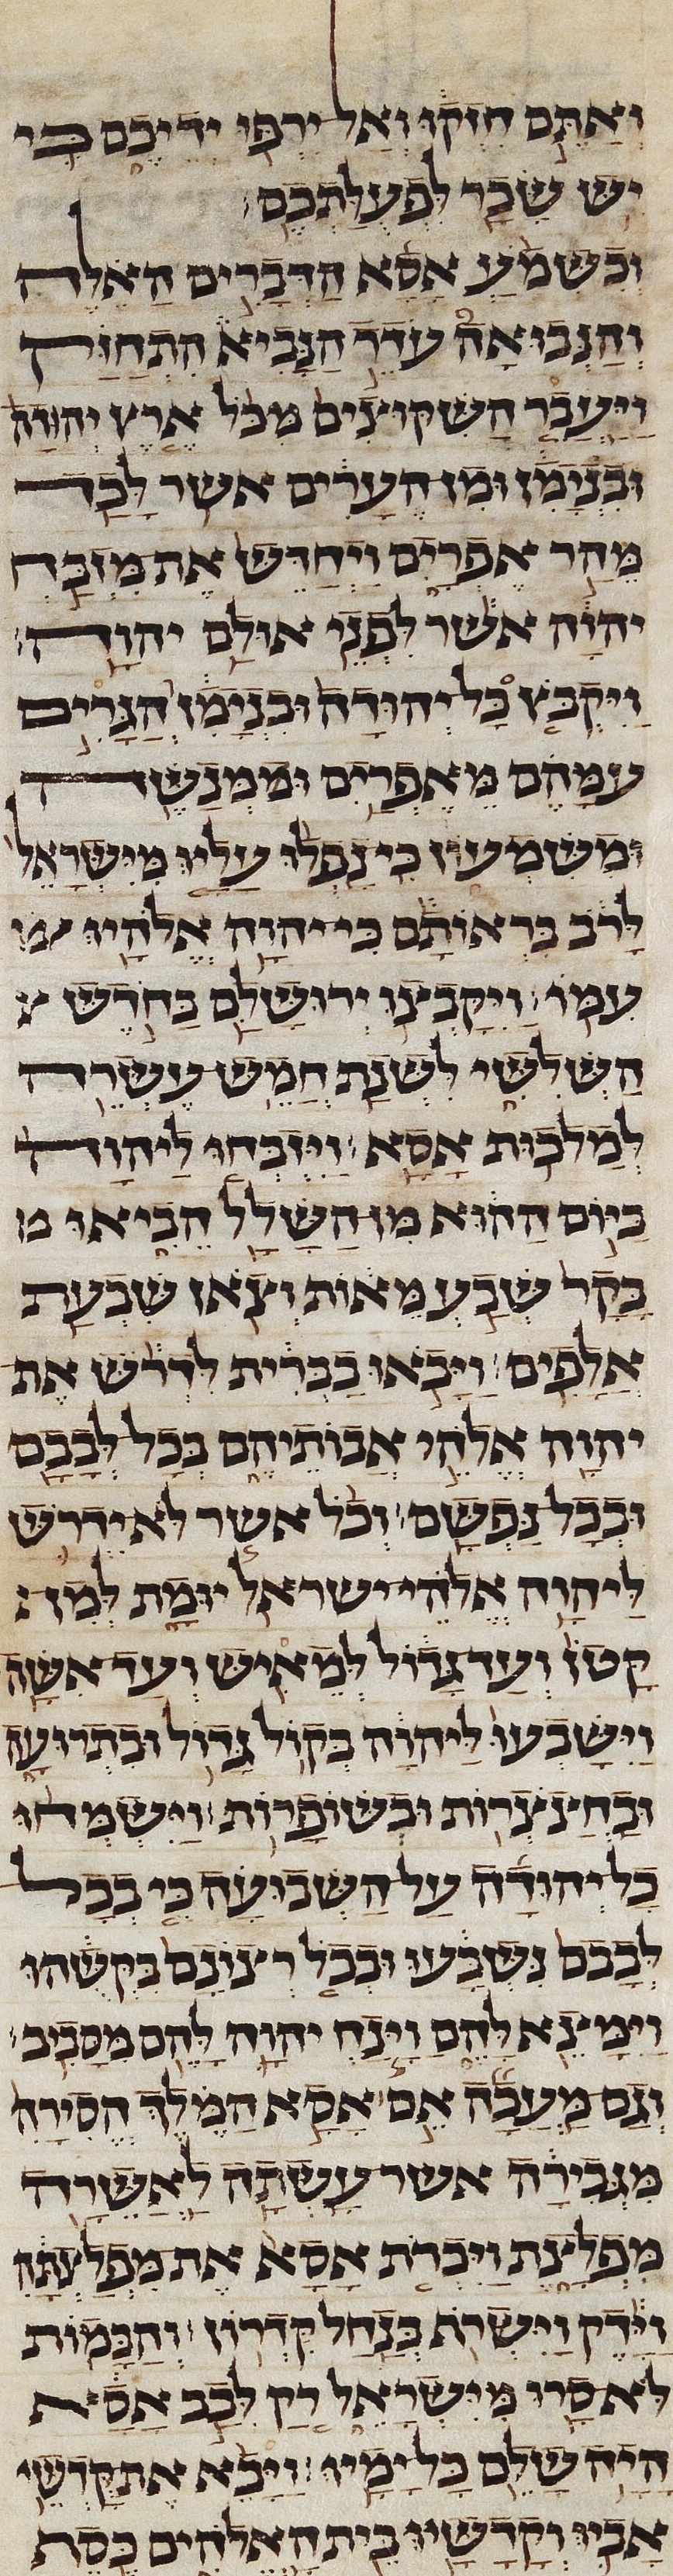 ואתם חזקו ואל ירפו ידיכם כי
יש שכר לפעלתכם
וכשמע אסא הדברים האלה
והנבואה עדד הנביא התחזק
ויעבר השקוצים מכל ארץ יהודה
ובנימן ומן הערים אשר לכד
מהר אפרים ויחדש את מזבח
יהוה אשר לפני אולם יהוה
ויקבץ כל יהודה ובנימן הגרים
עמהם מאפרים ומנשה
ומשמעון כי נפלו עליו מישראל
לרב בראותם כי יהוה אלהיו
עמו ויקבצו ירושלם בחדש
השלשי לשנת חמש עשרה
למלכות אסא ויזבחו ליהוה
ביום ההוא מן השלל הביאו
בקר שבע מאות וצאן שבעת
אלפים ויבאו בברית לדרש את
יהוה אלהי אבותיהם בכל לבבם
ובכל נפשם וכל אשר לא ידרש
ליהוה אלהי ישראל יומת למן
קטן ועד גדול למאיש ועד אשה
וישבעו ליהוה בקול גדול ובתרועה
ובחצצרות ובשופרות וישמחו
כל יהודה על השבועה כי בכל
לבבם נשבעו ובכל רצונם בקשהו
וימצא להם וינח יהוה להם מסביב
וגם מעכה אם אסא המלך הסירה
מגבירה אשר עשתה לאשרה
מפלצת ויכרת אסא את מפלצתה
וידק וישרף בנחל קדרון והבמות
לא סרו מישראל רק לבב אסא
היה שלם כל ימיו ויבא את קדשי
אביו וקדשיו בית האלהים כסף